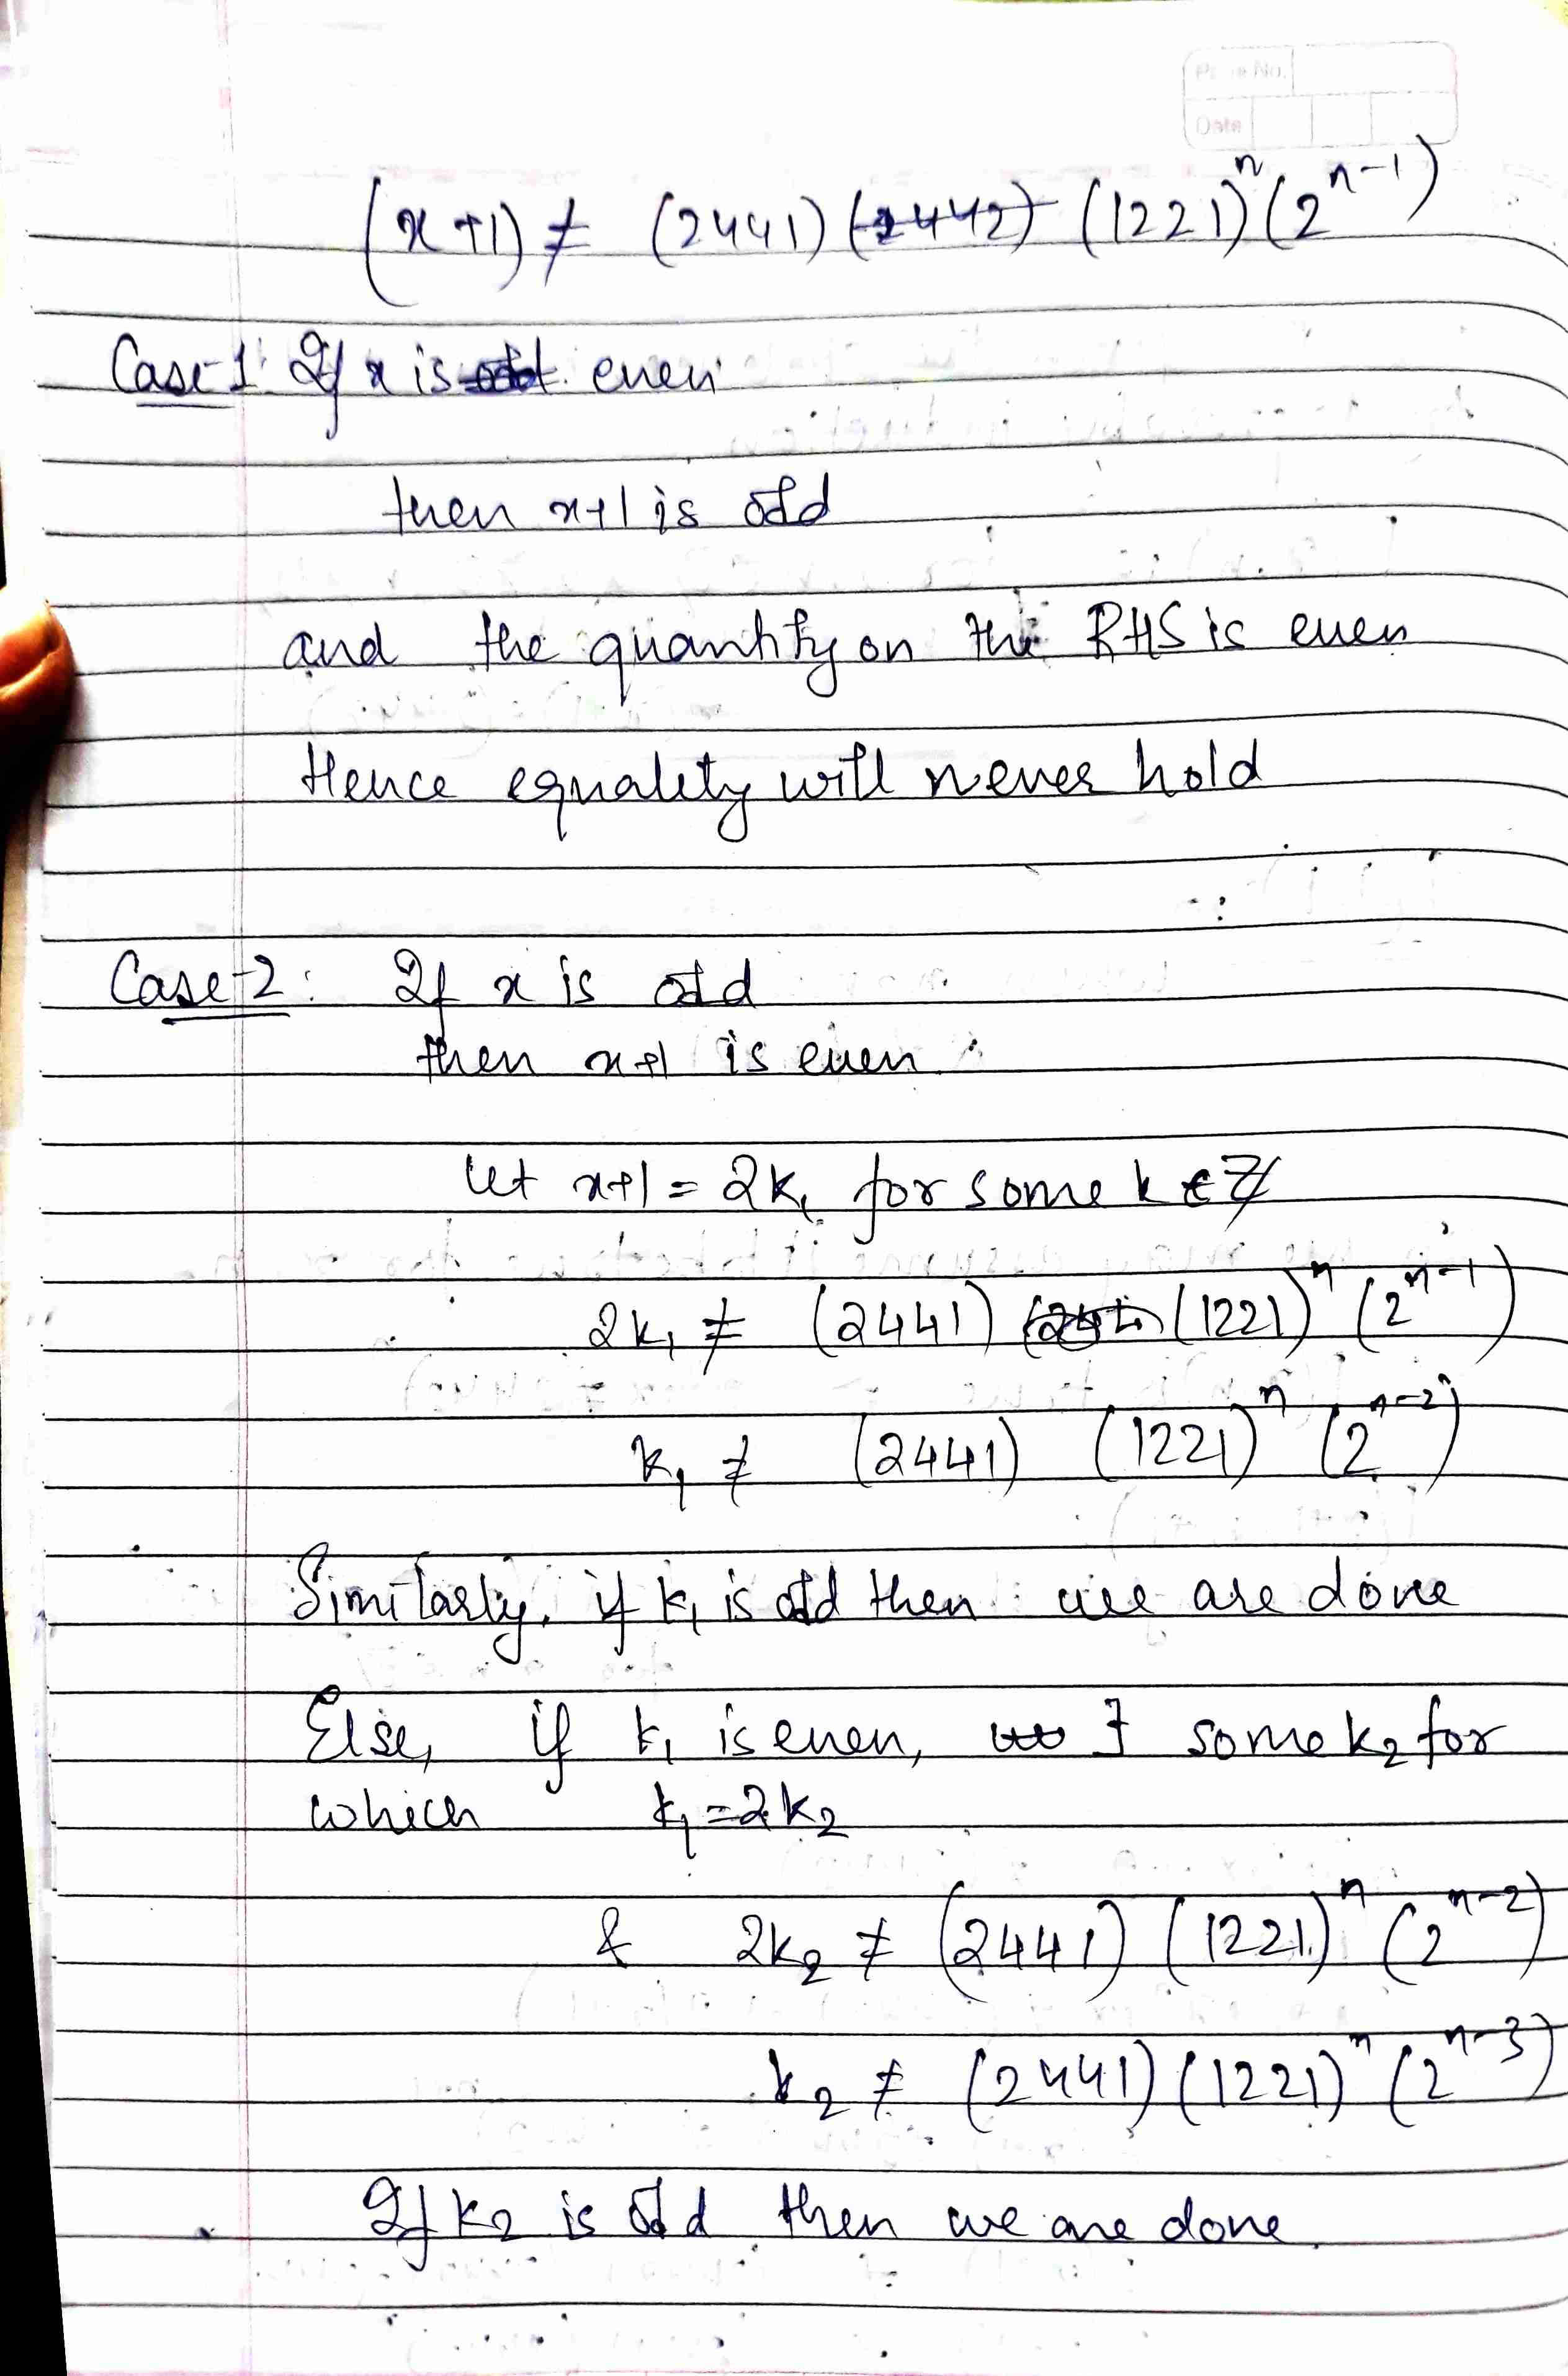 Page No.
Date
(x+1) ≠ (2441) (2442) (1221)^n (2^{n-1})
Case-1: If x is odd even
then x+1 is odd
and the quantity on the RHS is even
Hence equality will never hold
Case-2: If x is odd
then x+1 is even.
let x+1 = 2k₁ for some k ∈ ℤ
2k₁ ≠ (2441) (1221)^n (2^{n-1})
k₁ ≠ (2441) (1221)^n (2^{n-2})
Similarly, if k₁ is odd then we are done
Else, if k₁ is even, ∃ some k₂ for
which k₁ = 2k₂
& 2k₂ ≠ (2441) (1221)^n (2^{n-2})
k₂ ≠ (2441) (1221)^n (2^{n-3})
If k₂ is odd then we are done.